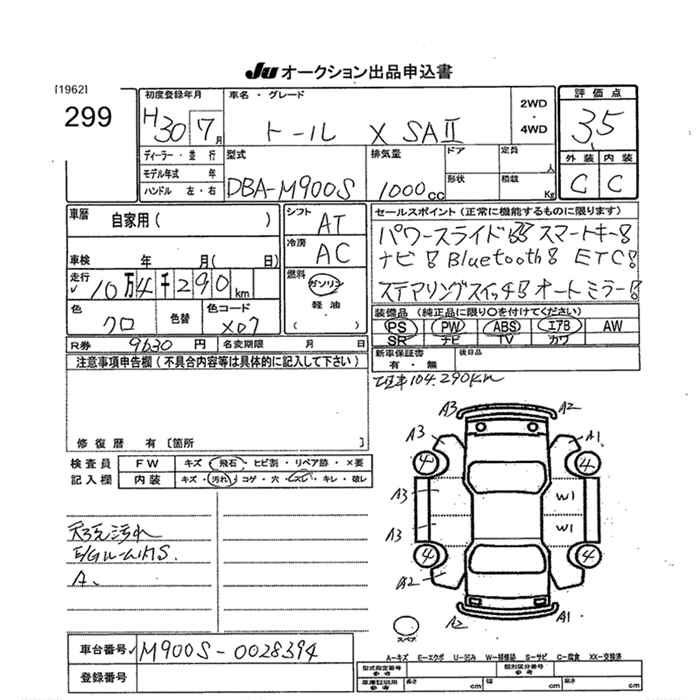 JU オークション出品申込書
[1962]
299
初度登録年月
H30 7月
車名・グレード
トール X SAⅡ
2WD
・
4WD
評価点
3.5
ディーラー・並行
モデル年式 年
ハンドル 左・右
型式
DBA-M900S
排気量
1000cc
ドア
形状
定員
人
積載
Kg
外装 内装
C C
車歴
自家用( )
車検 年 月( 日)
走行
10万4千290km
色
クロ
色替
色コード
X07
シフト
AT
冷房
AC
燃料
ガソリン
軽油
( )
セールスポイント(正常に機能するものに限ります)
パワースライド スマートキー!
ナビ! Bluetooth! ETC!
ステアリングスイッチ! オートミラー!
装備品(純正品に限り○を付けてください)
PS PW ABS エアB AW
SR ナビ TV カワ
R券 9630円
名変期限 月 日
新車保証書
有・無
後日品
注意事項申告欄(不具合内容等は具体的に記入して下さい)
104.290km
修復歴 有[箇所 ]
検査員
記入欄
FW キズ・飛石・ヒビ割・リペア跡・×要
内装 キズ・汚れ・コゲ・穴・スレ・キレ・破レ
汚れ
A、
A3 A2
A3 A1
4 4
A3 W1
A3 W1
4 4
A2
A2 A1
スペア
車台番号 M900S-0028394
登録番号
A-キズ E-エクボ U-凹み W-補修跡 S-サビ C-腐食 XX-交換済
型式指定番号
参考
類別区分番号
参考
車庫証明用
参考
長さ cm 幅 cm 高さ cm